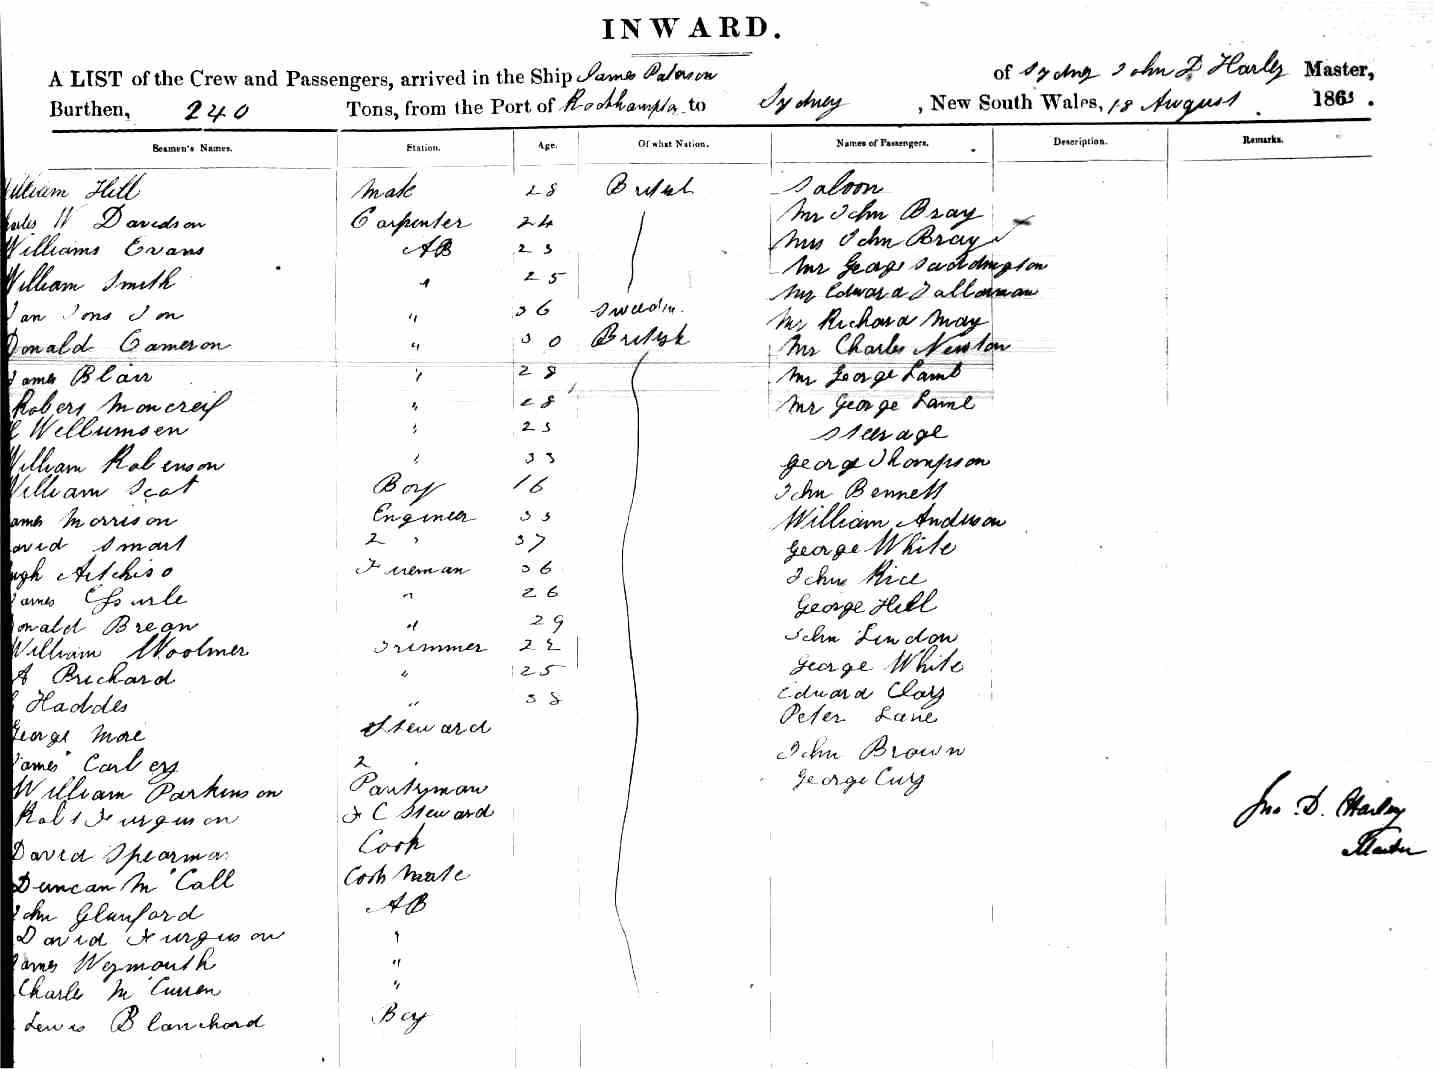 INWARD.
A LIST of the Crew and Passengers, arrived in the Ship James Paterson of Sydney John D Harley Master,
Burthen, 240 Tons, from the Port of Rockhampton to Sydney, New South Wales, 18 August 1863.
Seamen's Names. Station. Age. Of what Nation. Names of Passengers. Description. Remarks.
William Hill Mate 28 British Saloon
Charles W Davidson Carpenter 24 Mr John Bray
Williams Evans AB 23 Mrs John Bray
William Smith " 25 Mr George Saddington
Jan Jons Jon " 36 Sweedin. Mr Edward Tallerman
Donald Cameron " 30 British Mr Richard May
James Blair " 28 Mr Charles Newton
Robers Moncreif " 28 Mr George Lamb
Wellumsen " 23 Mr George Lame
William Robenson " 33 Steerage
William Scot Boy 16 George Thompson
James Morrison Engineer 33 John Bennett
David Smart 2 " 37 William Anderson
Hugh Aitchiso Fireman 36 George White
James " 26 John Rice
Donald Brean " 29 George Hill
William Woolmer Trimmer 22 John Lindon
A Prichard " 25 George White
Haddes " 38 Edward Clay
George More Steward Peter Lane
James Carbery 2 " John Brown
William Parkinson Pantryman George Cury
Robt Furguson F C Steward
David Spearman Cook
Duncan McCall Cook Mate
John Glanford AB
David Furguson "
James Weymouth "
Charle McCurren "
Lewis Blanchard Boy
Jno. D. Harley
Master